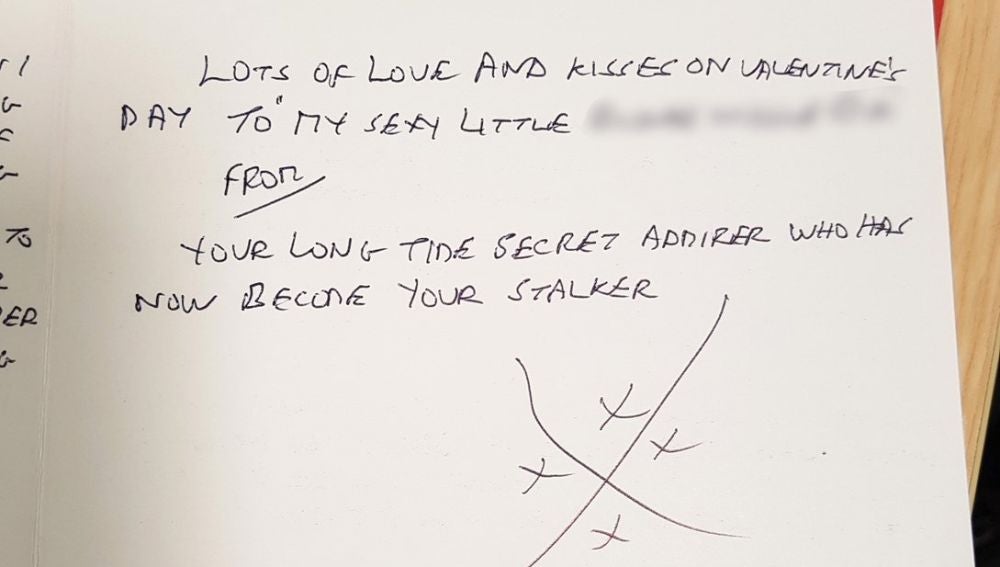 LOTS OF LOVE AND KISSES ON VALENTINE'S
DAY TO MY SEXY LITTLE
FROM
YOUR LONG TIME SECRET ADMIRER WHO HAS
NOW BECOME YOUR STALKER
X
X
X
X
X
TO
ER